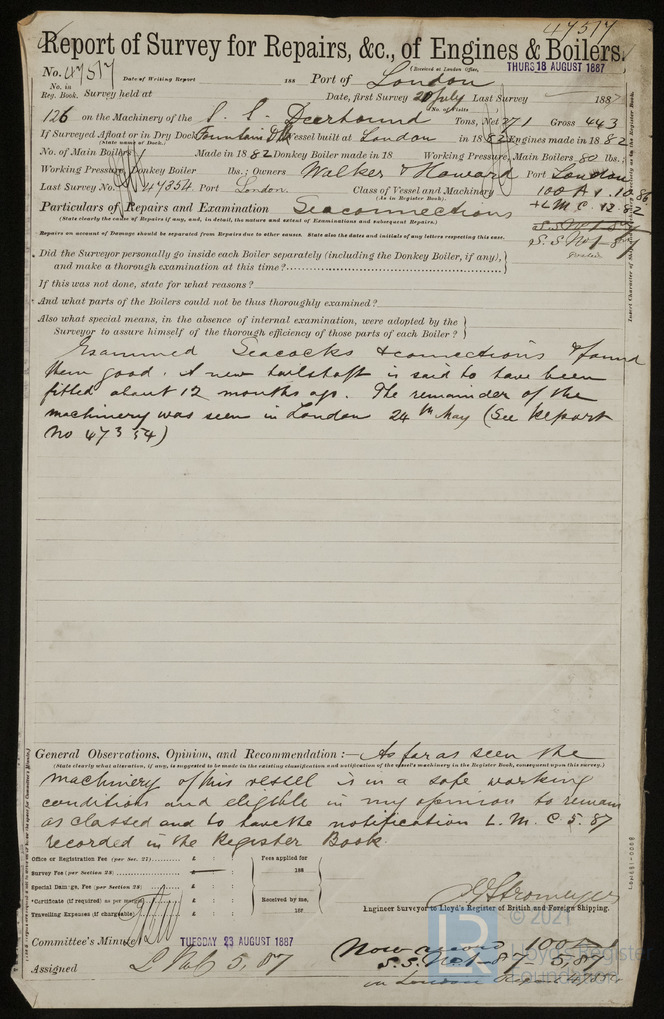 47517
Report of Survey for Repairs, &c., of Engines & Boilers.
(Received at London Office,
THURS 18 AUGUST 1887
No. 47517 Date of Writing Report 188 Port of London
No. in Reg. Book. Survey held at Date, first Survey 20 July Last Survey 1887
(No. of Visits
126 on the Machinery of the S. S. Deerhound Tons, Net 271 Gross 443
If Surveyed Afloat or in Dry Dock Fountain DDk Vessel built at London in 1882 Engines made in 1882
(State name of Dock.)
No. of Main Boilers Made in 1882 Donkey Boiler made in 18 Working Pressure, Main Boilers 80 lbs.;
Working Pressure Donkey Boiler lbs.; Owners Walker & Howard Port London
Last Survey No. 47354 Port London. Class of Vessel and Machinery 100 A 1. 10.86
(As in Register Book).
Particulars of Repairs and Examination Seaconnections + L M C. 12.82
(State clearly the cause of Repairs if any, and, in detail, the nature and extent of Examinations and subsequent Repairs.)
Repairs on account of Damage should be separated from Repairs due to other causes. State also the dates and initials of any letters respecting this case.
S. S. No 1 - 87
Did the Surveyor personally go inside each Boiler separately (including the Donkey Boiler, if any),
and make a thorough examination at this time?
If this was not done, state for what reasons?
And what parts of the Boilers could not be thus thoroughly examined?
Also what special means, in the absence of internal examination, were adopted by the
Surveyor to assure himself of the thorough efficiency of those parts of each Boiler?
Examined Seacocks & connections & found
them good. A new tailshaft is said to have been
fitted about 12 months ago. The remainder of the
machinery was seen in London 24th May (See Report
No 47354)
General Observations, Opinion, and Recommendation:— As far as seen the
(State clearly what alteration, if any, is suggested to be made in the existing classification and notification of the vessel's machinery in the Register Book, consequent upon this survey.)
machinery of this vessel is in a safe working
condition and eligible in my opinion to remain
as classed and to have the notification L. M. C 5. 87
recorded in the Register Book.
Office or Registration Fee (per Sec. 27) £ : : Fees applied for
Survey Fee (per Section 28) £ : : 188
Special Damage Fee (per Section 28) £ : :
*Certificate (if required) as per margin £ : : Received by me,
Travelling Expenses (if chargeable) £ : : 187
Engineer Surveyor to Lloyd's Register of British and Foreign Shipping.
Committee's Minute TUESDAY 23 AUGUST 1887
Now record 100 A 1
Assigned L M C 5, 87 S.S. No 1 - 87 - 5,87
in London Report 47354
LR
© 2021
Lloyd's Register
Foundation